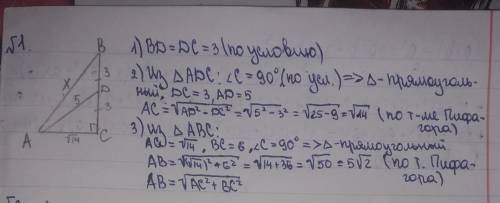 №1.
B
3
D
3
x
5
A
√14
C
1) BD = DC = 3 (по условию)
2) Из △ADC: ∠C = 90° (по усл.) => △-прямоуголь-
ный, DC = 3, AD = 5
AC = √AD² - DC² = √5² - 3² = √25 - 9 = √14 (по т-ме Пифа-
гора)
3) Из △ABC:
AC = √14, BC = 6, ∠C = 90° => △-прямоугольный
AB = √(√14)² + 6² = √14 + 36 = √50 = 5√2 (по т. Пифа-
гора)
AB = √AC² + BC²